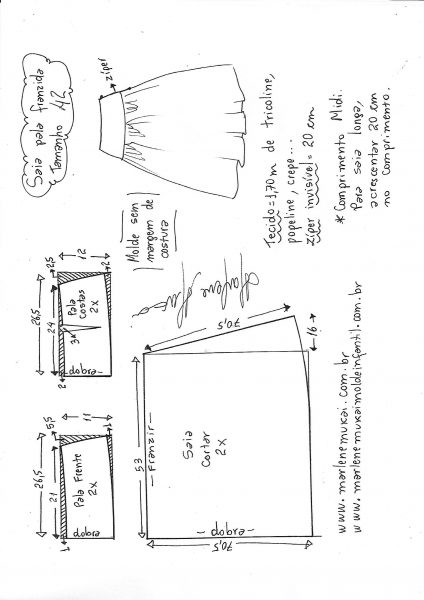 Saia pala franzida
Tamanho 42
zíper
Molde sem
margem de
costura
Marlene Mukai
Tecido=1,70m de tricoline,
popeline, crepe...
zíper invisível=20 cm
* Comprimento Midi.
Para saia longa,
acrescentar 20 cm
no comprimento.
26,5
24
2,5
12
2
2
3
Pala
costas
2x
dobra
26,5
21
5,5
11
1
1
Pala Frente
2x
dobra
70,5
16
53
Franzir
Saia
Cortar
2x
dobra
70,5
www.marlenemukai.com.br
www.marlenemukaimoldeinfantil.com.br